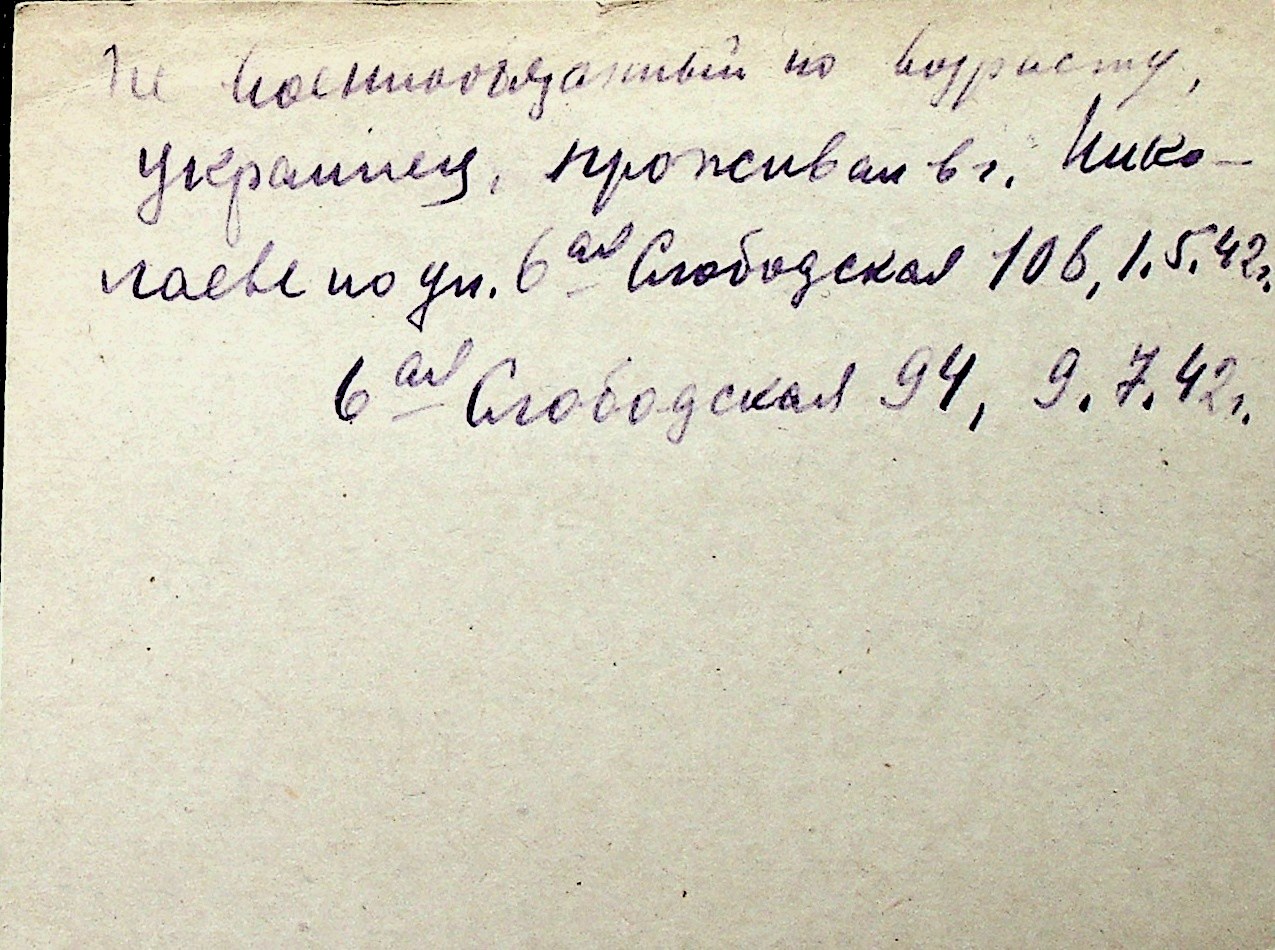 Не военнообязанный по возрасту,
украинец, проживал в г. Нико-
лаеве по ул. 6ая Слободская 106, 1.5.42г.
6ая Слободская 94, 9.7.42г.